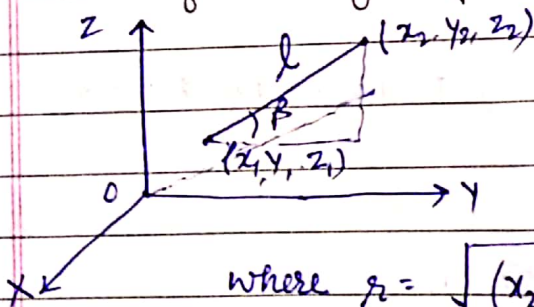 Z
(x₂, y₂, z₂)
l
β
(x₁, y₁, z₁)
O
Y
X
where r = √(x₂